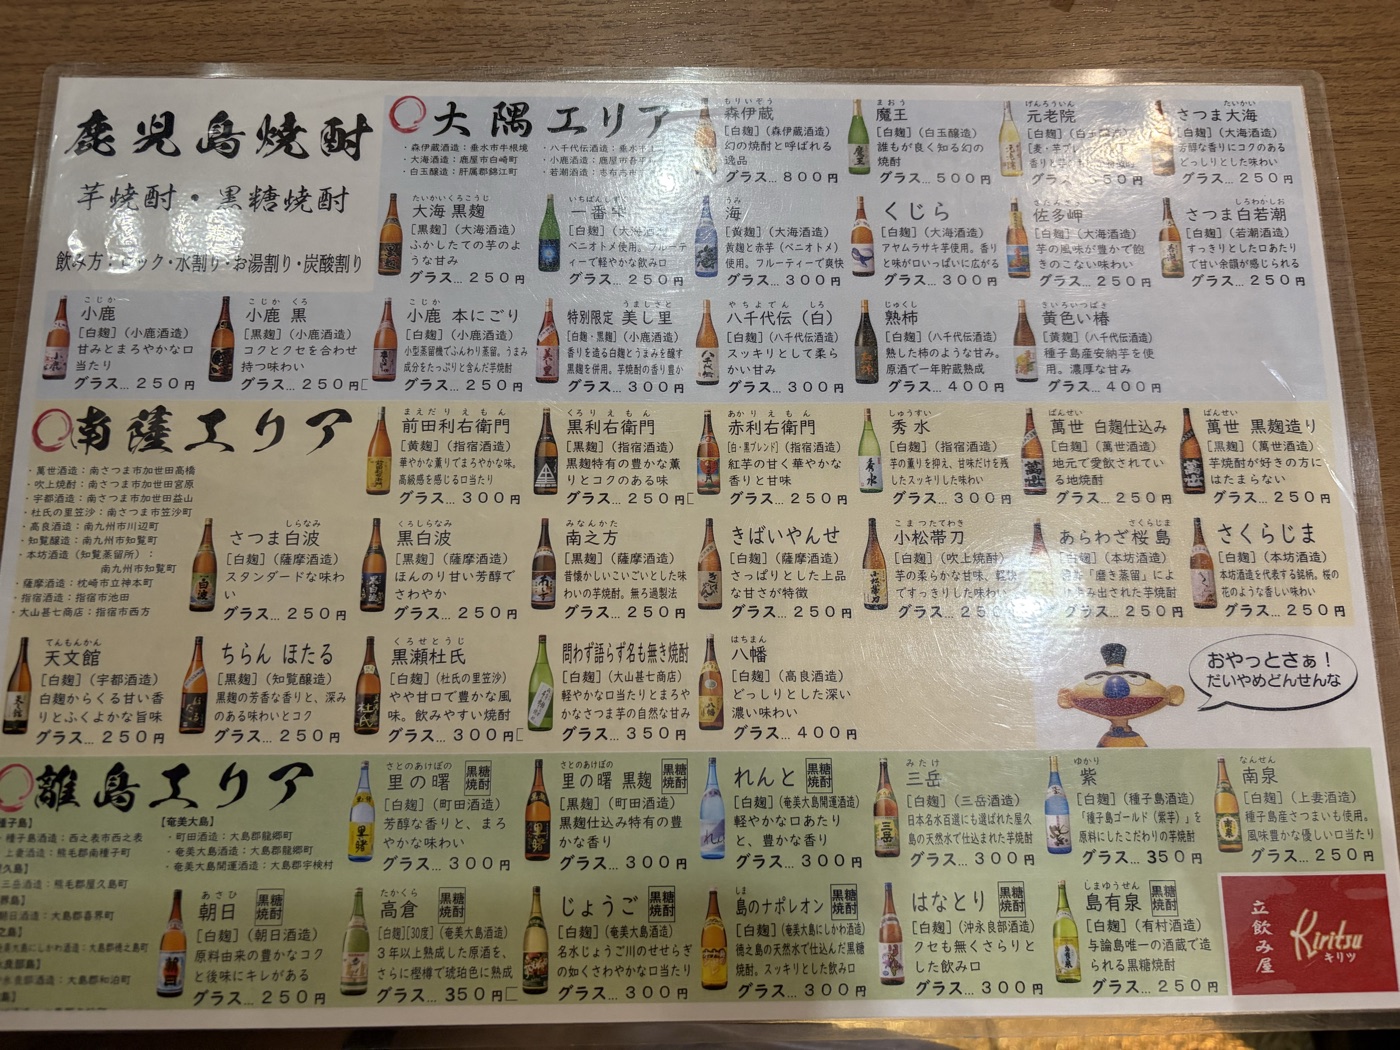 鹿児島焼酎
芋焼酎・黒糖焼酎
飲み方：ロック・水割り・お湯割り・炭酸割り
大隅エリア
・森伊蔵酒造：垂水市牛根境
・大海酒造：鹿屋市白崎町
・白玉醸造：肝属郡錦江町
・八千代伝酒造：垂水
・小鹿酒造：鹿屋市吾平
・若潮酒造：志布志市
もりいぞう
森伊蔵
[白麹]（森伊蔵酒造）
幻の焼酎と呼ばれる
逸品
グラス…８００円
まおう
魔王
[白麹]（白玉醸造）
誰もが良く知る幻の
焼酎
グラス…５００円
げんろういん
元老院
[白麹]（白玉
[麦・芋
香りと
グラス
５０円
たいかい
さつま大海
[白麹]（大海酒造）
芳醇な香りにコクのある
どっしりとした味わい
グラス…２５０円
たいかいくろこうじ
大海 黒麹
[黒麹]（大海酒造）
ふかしたての芋のよ
うな甘み
グラス…２５０円
いちばんしずく
一番雫
[白麹]（大海酒造
ベニオトメ使用。フルーテ
ィーで軽やかな飲み口
グラス…２５０円
うみ
海
[黄麹]（大海酒造）
黄麹と赤芋（ベニオトメ）
使用。フルーティーで爽快
グラス…３００円
くじら
[白麹]（大海酒造）
アヤムラサキ芋使用。香り
と味が口いっぱいに広がる
グラス…３００円
さたみさき
佐多岬
[白麹]（大海酒造）
芋の風味が豊かで飽
きのこない味わい
グラス…２５０円
しろわかしお
さつま白若潮
[白麹]（若潮酒造）
すっきりとした口あたり
で甘い余韻が感じられる
グラス…２５０円
こじか
小鹿
[白麹]（小鹿酒造）
甘みとまろやかな口
当たり
グラス…２５０円
こじか くろ
小鹿 黒
[黒麹]（小鹿酒造）
コクとクセを合わせ
持つ味わい
グラス…２５０円
こじか
小鹿 本にごり
[白麹]（小鹿酒造）
小型蒸留機でふんわり蒸留。うまみ
成分をたっぷりと含んだ芋焼酎
グラス…２５０円
うましさと
特別限定 美し里
[白麹・黒麹]（小鹿酒造）
香りを造る白麹とうまみを醸す
黒麹を併用。芋焼酎の香り豊か
グラス…３００円
やちよでん しろ
八千代伝（白）
[白麹]（八千代伝酒造）
スッキリとして柔ら
かい甘み
グラス…３００円
じゅくし
熟柿
[白麹]（八千代伝酒造）
熟した柿のような甘み。
原酒で一年貯蔵熟成
グラス…４００円
きいろいつばき
黄色い椿
[黄麹]（八千代伝酒造）
種子島産安納芋を使
用。濃厚な甘み
グラス…４００円
南薩エリア
・萬世酒造：南さつま市加世田高橋
・吹上焼酎：南さつま市加世田宮原
・宇都酒造：南さつま市加世田益山
・杜氏の里笠沙：南さつま市笠沙町
・高良酒造：南九州市川辺町
・知覧醸造：南九州市知覧町
・本坊酒造（知覧蒸留所）：
南九州市知覧町
・薩摩酒造：枕崎市立神本町
・指宿酒造：指宿市池田
・大山甚七商店：指宿市西方
まえだりえもん
前田利右衛門
[黄麹]（指宿酒造）
華やかな薫りでまろやかな味。
高級感を感じる口当たり
グラス…３００円
くろりえもん
黒利右衛門
[黒麹]（指宿酒造）
黒麹特有の豊かな薫
りとコクのある味
グラス…２５０円
あかりえもん
赤利右衛門
[白・黒ブレンド]（指宿酒造）
紅芋の甘く華やかな
香りと甘味
グラス…２５０円
しゅうすい
秀水
[白麹]（指宿酒造）
芋の薫りを抑え、甘味だけを残
したスッキリした味わい
グラス…３００円
ばんせい
萬世 白麹仕込み
[白麹]（萬世酒造）
地元で愛飲されてい
る地焼酎
グラス…２５０円
ばんせい
萬世 黒麹造り
[黒麹]（萬世酒造）
芋焼酎が好きの方に
はたまらない
グラス…２５０円
しらなみ
さつま白波
[白麹]（薩摩酒造）
スタンダードな味わ
い
グラス…２５０円
くろしらなみ
黒白波
[黒麹]（薩摩酒造）
ほんのり甘い芳醇で
さわやか
グラス…２５０円
みなんかた
南之方
[黒麹]（薩摩酒造）
昔懐かしいこいごいとした味
わいの芋焼酎。無ろ過製法
グラス…２５０円
きばいやんせ
[白麹]（薩摩酒造）
さっぱりとした上品
な甘さが特徴
グラス…２５０円
こまつたてわき
小松帯刀
[白麹]（吹上焼酎）
芋の柔らかな甘味、軽快
ですっきりした味わい
グラス…２５０
さくらじま
あらわざ桜島
[白麹]（本坊酒造）
「磨き蒸留」によ
み出された芋焼酎
グラス…２５０円
さくらじま
[白麹]（本坊酒造）
本坊酒造を代表する銘柄。桜の
花のような香しい味わい
グラス…２５０円
てんもんかん
天文館
[白麹]（宇都酒造）
白麹からくる甘い香
りとふくよかな旨味
グラス…２５０円
ちらん ほたる
[黒麹]（知覧醸造）
黒麹の芳香な香りと、深み
のある味わいとコク
グラス…２５０円
くろせとうじ
黒瀬杜氏
[白麹]（杜氏の里笠沙）
やや甘口で豊かな風
味。飲みやすい焼酎
グラス…３００円
問わず語らず名も無き焼酎
[白麹]（大山甚七商店）
軽やかな口当たりとまろや
かなさつま芋の自然な甘み
グラス…３５０円
はちまん
八幡
[白麹]（高良酒造）
どっしりとした深い
濃い味わい
グラス…４００円
おやっとさぁ！
だいやめどんせんな
離島エリア
種子島】
・種子島酒造：西之表市西之表
上妻酒造：熊毛郡南種子町
久島】
三岳酒造：熊毛郡屋久島町
界島】
朝日酒造：大島郡喜界町
之島】
奄美大島にしかわ酒造：大島郡徳之島町
良部島】
沖永良部酒造：大島郡和泊町
島】
【奄美大島】
・町田酒造：大島郡龍郷町
・奄美大島酒造：大島郡龍郷町
・奄美大島開運酒造：大島郡宇検村
さとのあけぼの
里の曙 黒糖焼酎
[白麹]（町田酒造）
芳醇な香りと、まろ
やかな味わい
グラス…３００円
さとのあけぼの
里の曙 黒麹 黒糖焼酎
[黒麹]（町田酒造）
黒麹仕込み特有の豊
かな香り
グラス…３００円
れんと 黒糖焼酎
[白麹]（奄美大島開運酒造）
軽やかな口あたり
と、豊かな香り
グラス…３００円
みたけ
三岳
[白麹]（三岳酒造）
日本名水百選にも選ばれた屋久
島の天然水で仕込まれた芋焼酎
グラス…３００円
ゆかり
紫
[白麹]（種子島酒造）
「種子島ゴールド（紫芋）」を
原料にしたこだわりの芋焼酎
グラス…３５０円
なんせん
南泉
[白麹]（上妻酒造）
種子島産さつまいも使用。
風味豊かな優しい口当たり
グラス…２５０円
あさひ
朝日 黒糖焼酎
[白麹]（朝日酒造）
原料由来の豊かなコク
と後味にキレがある
グラス…２５０円
たかくら
高倉 黒糖焼酎
[白麹]【30度】（奄美大島酒造）
３年以上熟成した原酒を、
さらに樫樽で琥珀色に熟成
グラス…３５０円
じょうご 黒糖焼酎
[白麹]（奄美大島酒造）
名水じょうご川のせせらぎ
の如くさわやかな口当たり
グラス…３００円
しま
島のナポレオン 黒糖焼酎
[白麹]（奄美大島にしかわ酒造）
徳之島の天然水で仕込んだ黒糖
焼酎。スッキリとした飲み口
グラス…３００円
はなとり 黒糖焼酎
[白麹]（沖永良部酒造）
クセも無くさらりと
した飲み口
グラス…３００円
しまゆうせん
島有泉 黒糖焼酎
[白麹]（有村酒造）
与論島唯一の酒蔵で造
られる黒糖焼酎
グラス…２５０円
立飲み屋
Kiritsu
キリツ